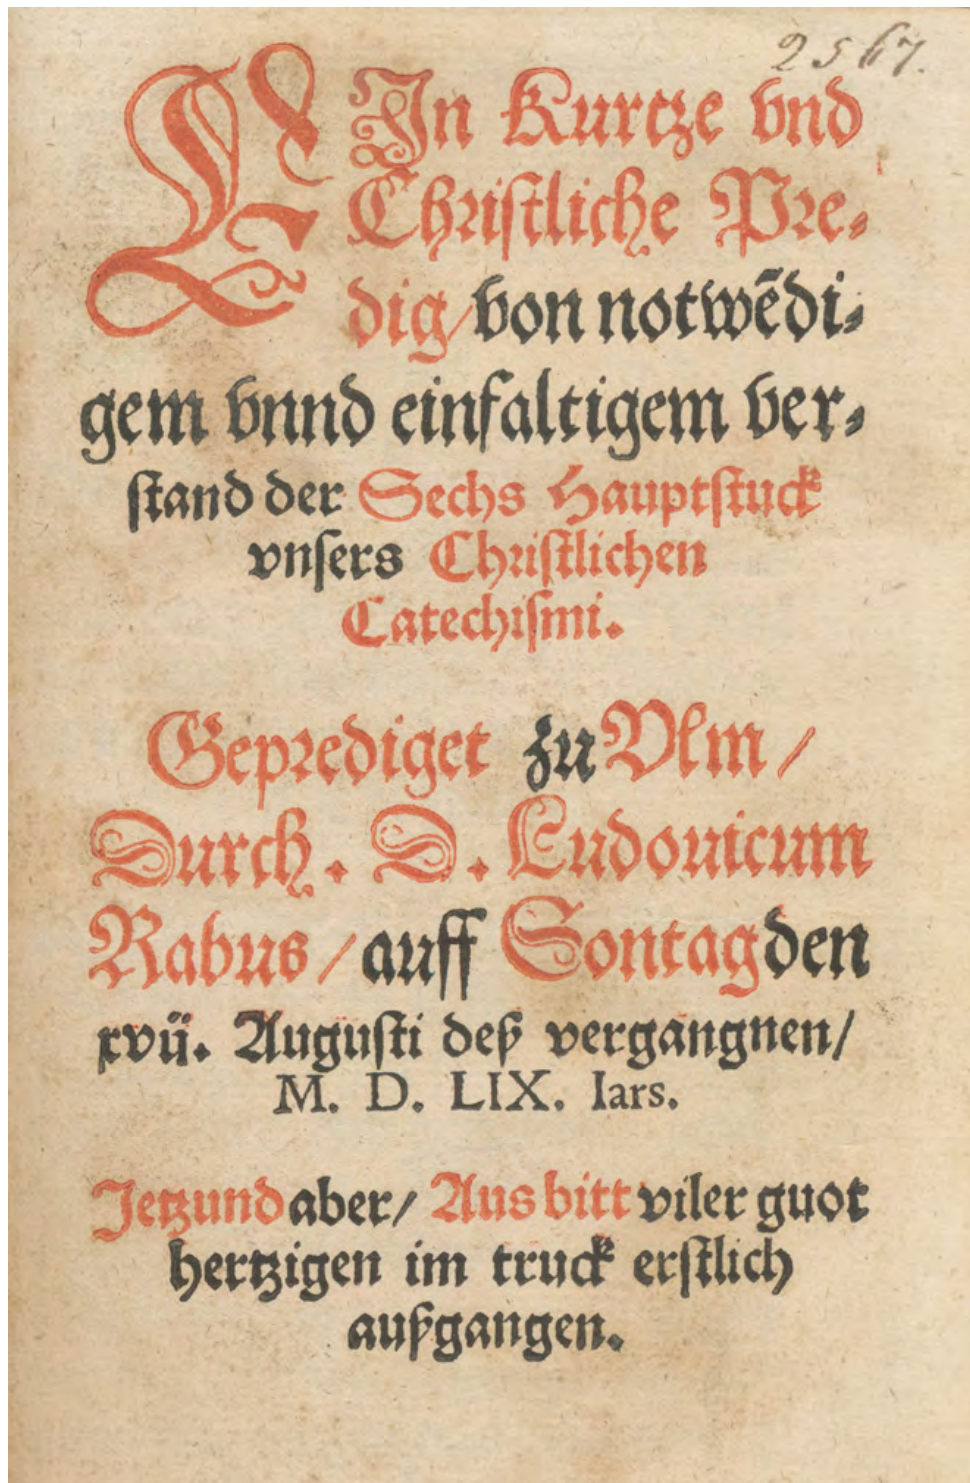 2567.
EIn Kurtze vnd
Chꝛiſtliche Pꝛe⸗
dig/von notwẽdi⸗
gem vnnd einfaltigem ver⸗
ſtand der Sechs Hauptſtuck
vnſers Chꝛiſtlichen
Catechiſmi.
Gepꝛediget zu Vlm/
Durch. D. Ludouicum
Rabus/auff Sontag den
xvij. Auguſti deß vergangnen/
M. D. LIX. Iars.
Jetzund aber/ Aus bitt viler guot
hertzigen im truck erſtlich
außgangen.